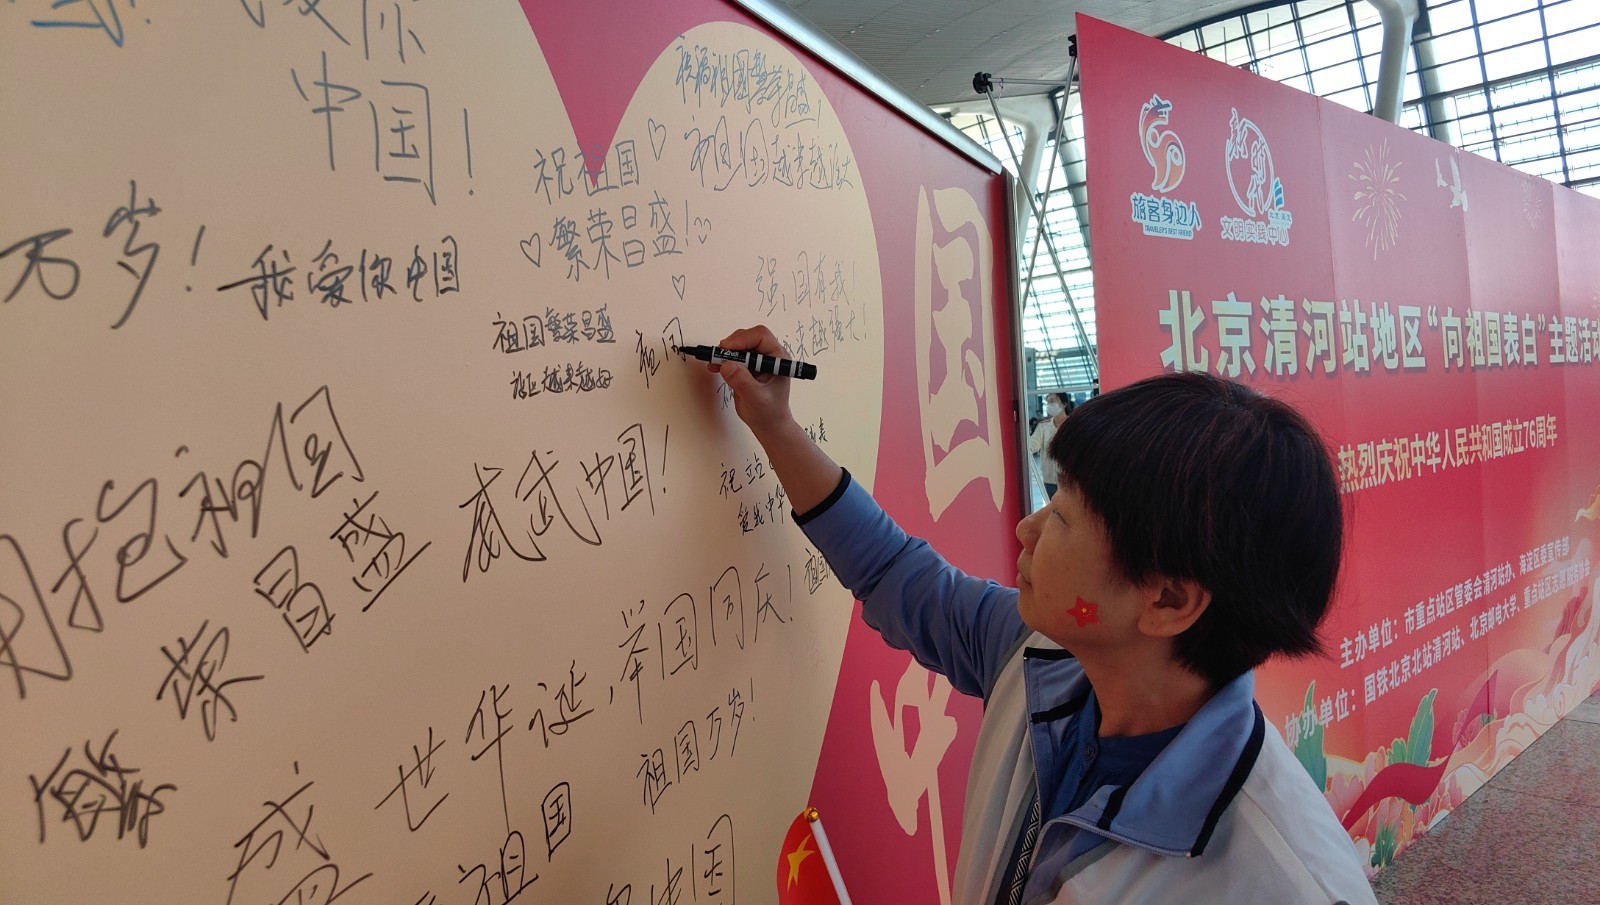 中国!
万岁!
我爱你中国
祝福祖国繁荣昌盛!
祖国越来越强大
祝祖国
繁荣昌盛!
强国有我
越来越强大!
祖国繁荣昌盛
祖国
拥抱祖国
繁荣昌盛
威武中国!
盛世华诞,举国同庆!
祖国
祖国万岁!
祖国
中国
国
中
旅客身边人
TRAVELER'S BEST FRIEND
新时代
文明实践中心
北京清河站地区“向祖国表白”主题活动
热烈庆祝中华人民共和国成立76周年
主办单位：市重点站区管委会清河站办、海淀区委宣传部
协办单位：国铁北京北站清河站、北京邮电大学、重点站区志愿服务协会